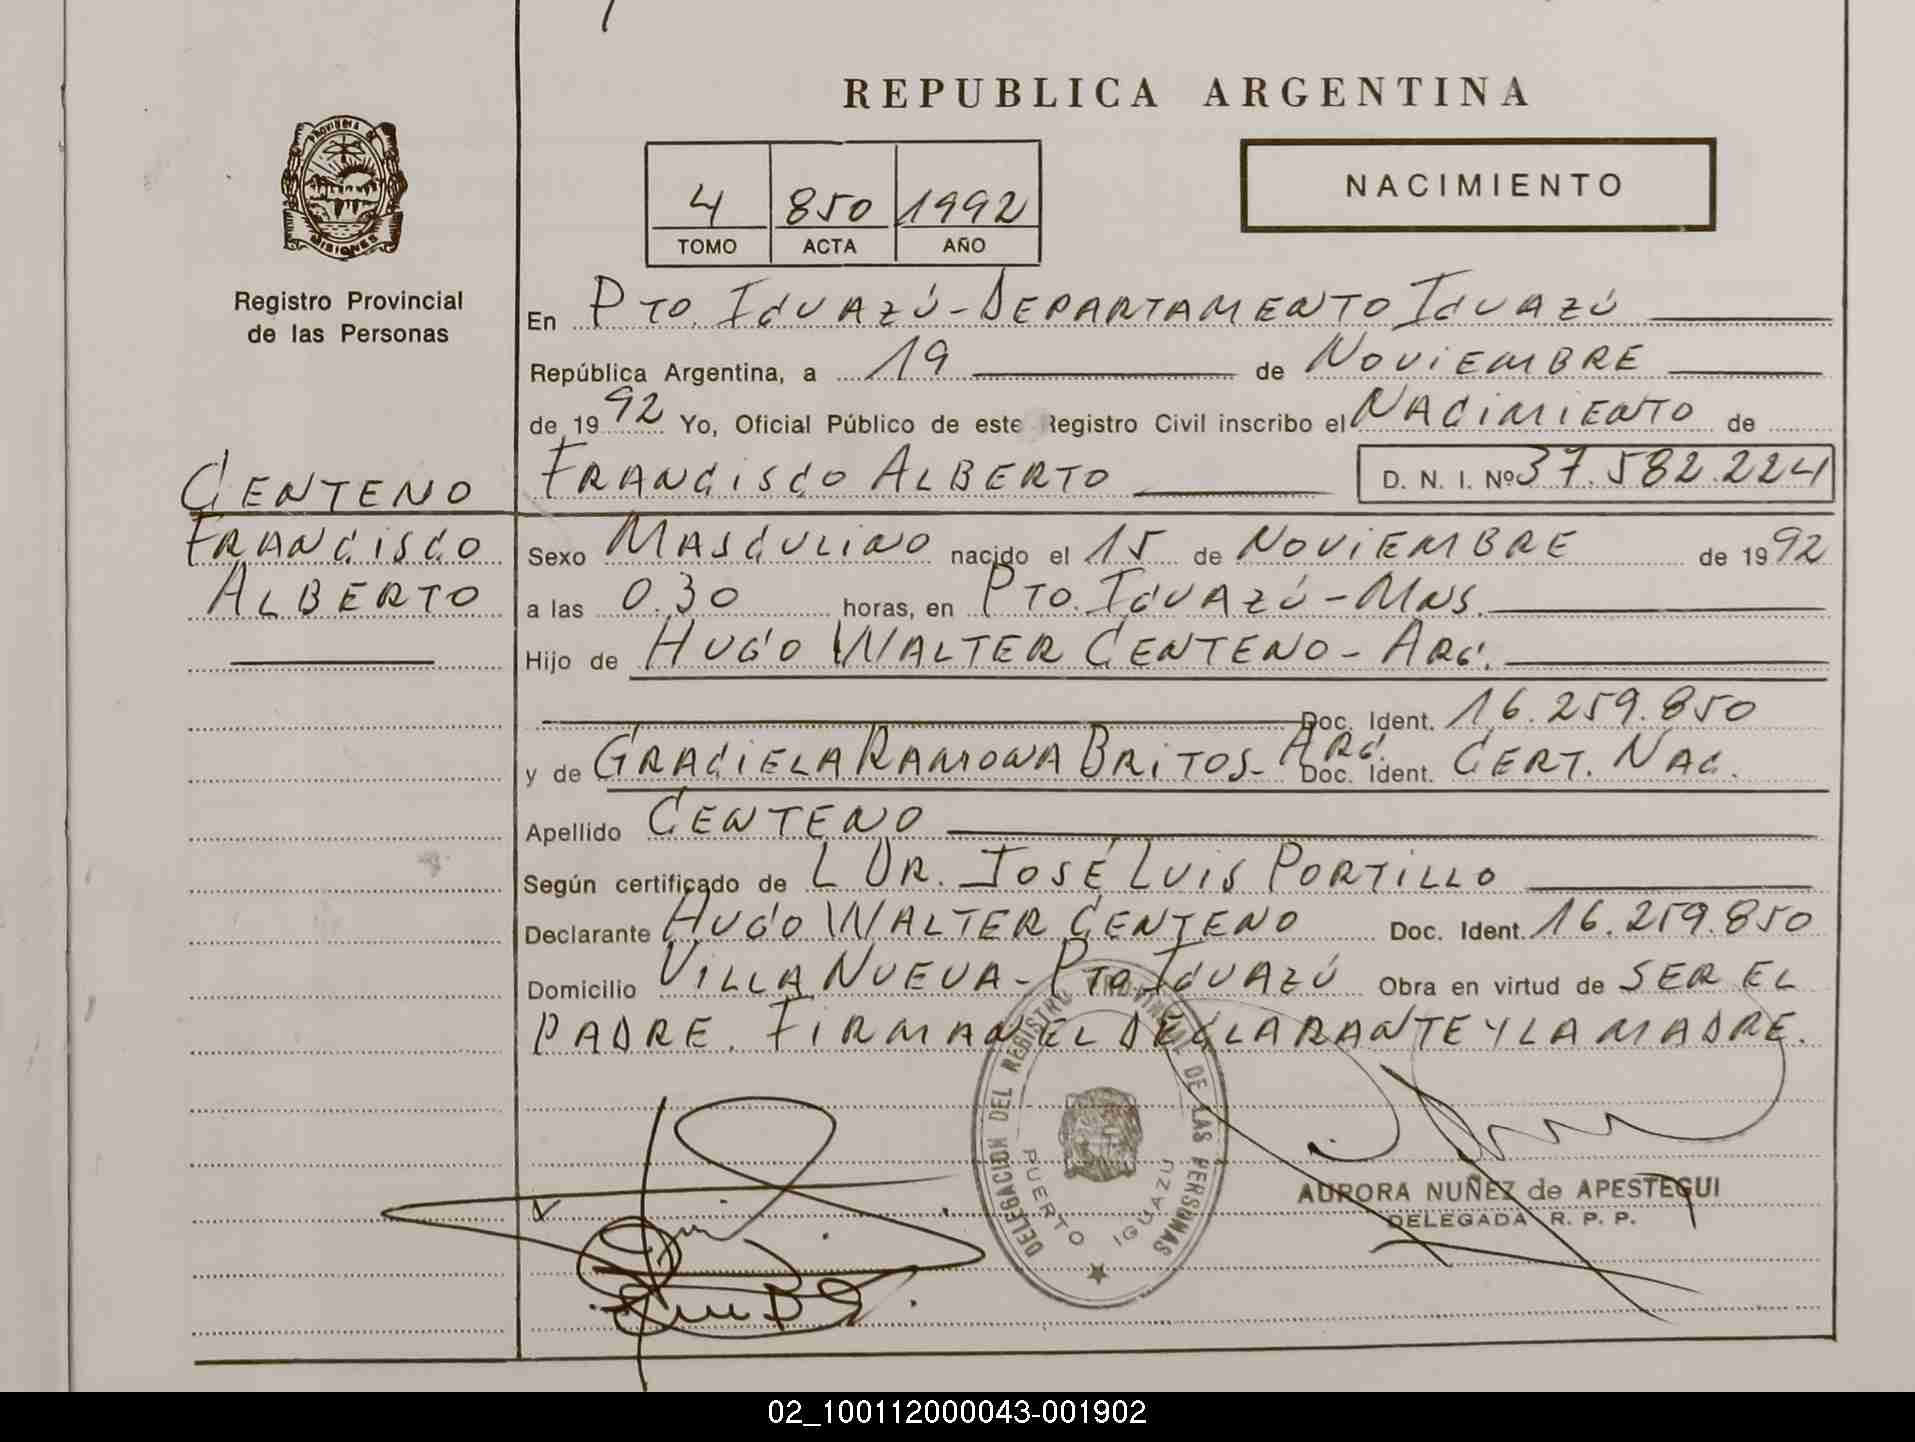 REPUBLICA ARGENTINA
PROVINCIA DE
MISIONES
Registro Provincial
de las Personas
NACIMIENTO
4 850 1992
TOMO ACTA AÑO
En PTO. IGUAZÚ - DEPARTAMENTO IGUAZÚ
República Argentina, a 19 de NOVIEMBRE
de 1992 Yo, Oficial Público de este Registro Civil inscribo el NACIMIENTO de
FRANCISCO ALBERTO D. N. I. Nº 37.582.224
CENTENO
FRANCISCO
ALBERTO
Sexo MASCULINO nacido el 15 de NOVIEMBRE de 1992
a las 0.30 horas, en PTO. IGUAZÚ - MNS.
Hijo de HUGO WALTER CENTENO - ARG.
Doc. Ident. 16.259.850
y de GRACIELA RAMONA BRITOS - ARG. Doc. Ident. CERT. NAC.
Apellido CENTENO
Según certificado de L DR. JOSÉ LUIS PORTILLO
Declarante HUGO WALTER CENTENO Doc. Ident. 16.259.850
Domicilio VILLA NUEVA - PTO. IGUAZÚ Obra en virtud de SER EL
PADRE. FIRMAN EL DECLARANTE Y LA MADRE.
DELEGACION DEL REGISTRO PROVINCIAL DE LAS PERSONAS
PUERTO IGUAZU
AURORA NUÑEZ de APESTEGUI
DELEGADA R. P. P.
02_100112000043-001902